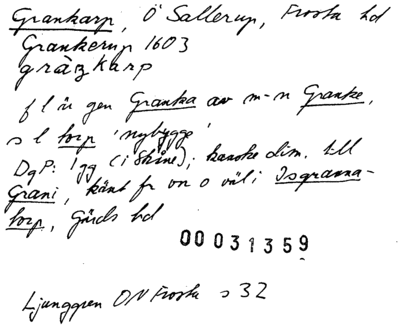 Grankarp, Ö Sallerup, Frosta hd
Grankerup 1603
gràŋkarp
f l är gen Granka av m-n Granke,
s l torp 'nybygge'
DgP: 1 gg (i Skåne); kanske dim. till
Grani, känt fr on o väl i Isgranna-
torp, Gärds hd
00031359
Ljunggren ON Frosta s 32